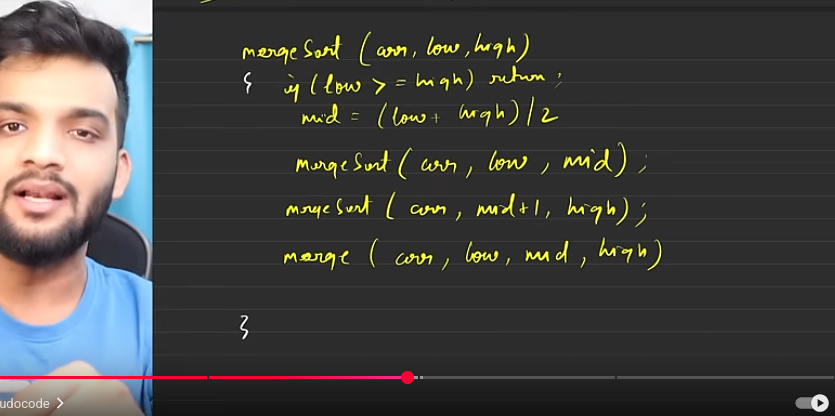 mergeSort (arr, low, high)
{ if (low >= high) return;
mid = (low + high) / 2
mergeSort (arr, low, mid);
mergeSort (arr, mid+1, high);
merge (arr, low, mid, high)
}
udocode >